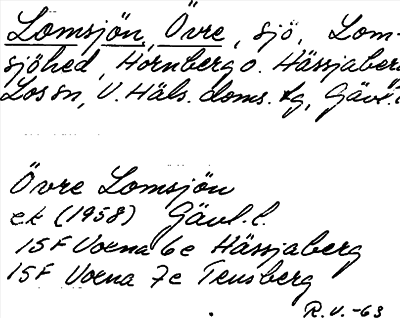 Lomsjön, Övre, sjö, Lom-
sjöhed, Hornberg o. Hässjaberg
Los sn, V. Häls. doms. tg, Gävl. l.
Övre Lomsjön
ek (1958) Gävl. l.
15F Voxna 6e Hässjaberg
15F Voxna 7e Tensberg
R.V.-63